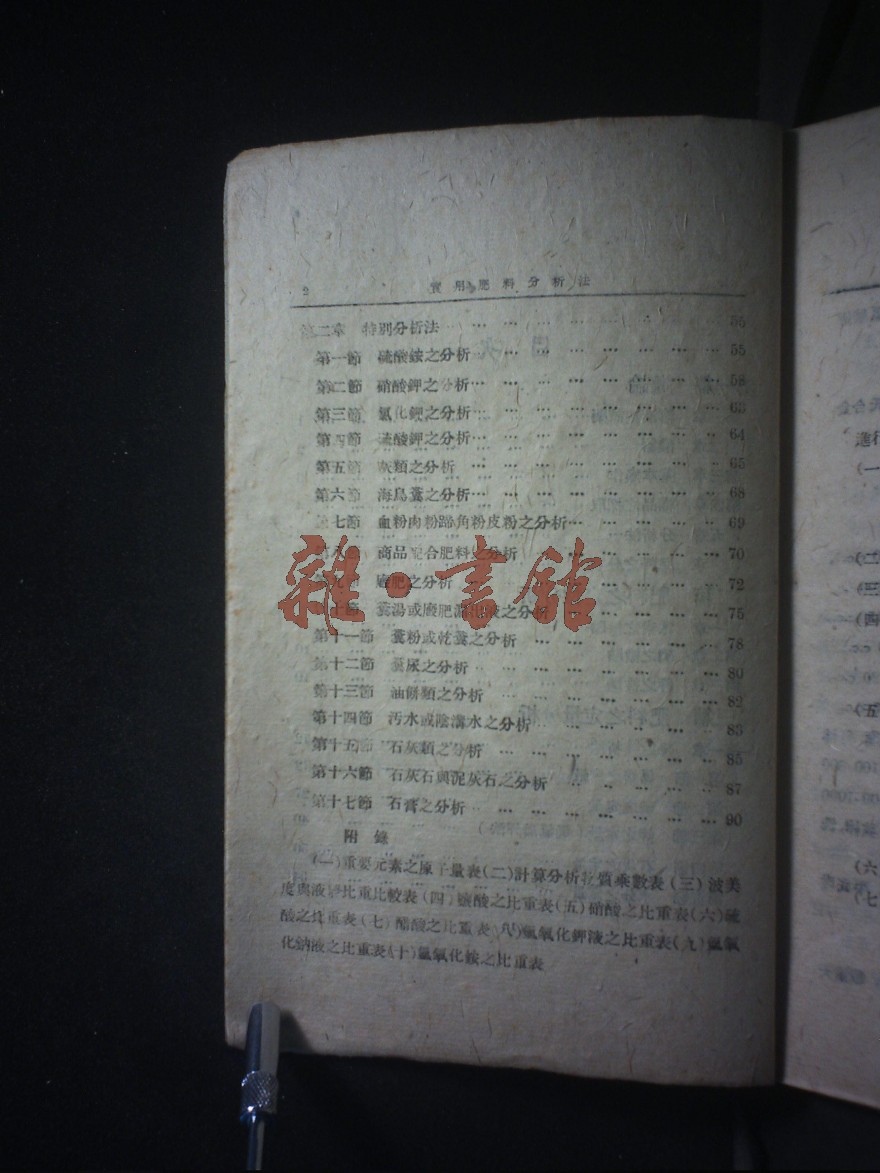 2 實用肥料分析法
第二章 特別分析法 … … … … … … … … 55
第一節 硫酸銨之分析… … … … … … … … 55
第二節 硝酸鉀之分析… … … … … … … … 58
第三節 氯化鉀之分析… … … … … … … … 63
第四節 硫酸鉀之分析… … … … … … … … 64
第五節 灰類之分析 … … … … … … … … 65
第六節 海鳥糞之分析… … … … … … … … 68
第七節 血粉肉粉蹄角粉皮粉之分析… … … … … 69
第八節 商品配合肥料之分析 … … … … … … 70
第九節 廄肥之分析 … … … … … … … 72
第十節 糞湯或廄肥 液之分析 … … … … … 75
第十一節 糞粉或乾糞之分析 … … … … … … 78
第十二節 糞尿之分析 … … … … … … … 80
第十三節 油餅類之分析 … … … … … … … 82
第十四節 汚水或陰溝水之分析 … … … … … 83
第十五節 石灰類之分析 … … … … … … 85
第十六節 石灰石與泥灰石之分析 … … … … … 87
第十七節 石膏之分析 … … … … … … … 90
附錄
(一)重要元素之原子量表(二)計算分析物質乘數表(三)波美
度與液體比重比較表(四)鹽酸之比重表(五)硝酸之比重表(六)硫
酸之比重表(七)醋酸之比重表(八)氫氧化鉀液之比重表(九)氫氧
化鈉液之比重表(十)氫氧化銨之比重表
雜·書館
進行
(一
(二
(三
(四
(五
(六
(七